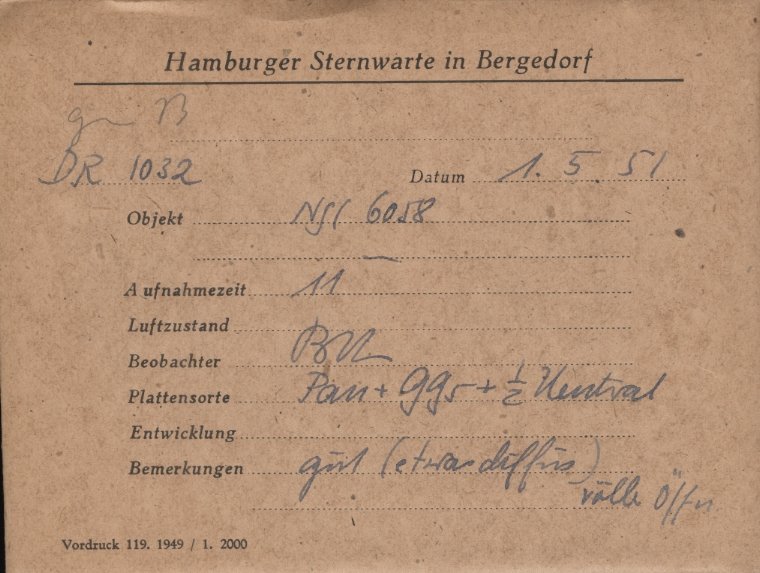 Hamburger Sternwarte in Bergedorf
B
DR 1032 Datum 1. 5. 51
Objekt NGC 6058
Aufnahmezeit 11
Luftzustand
Beobachter
Plattensorte Pan + GG5 + 1/2 Neutral
Entwicklung
Bemerkungen gut (etwas diffus)
volle Öffn
Vordruck 119. 1949 / 1. 2000